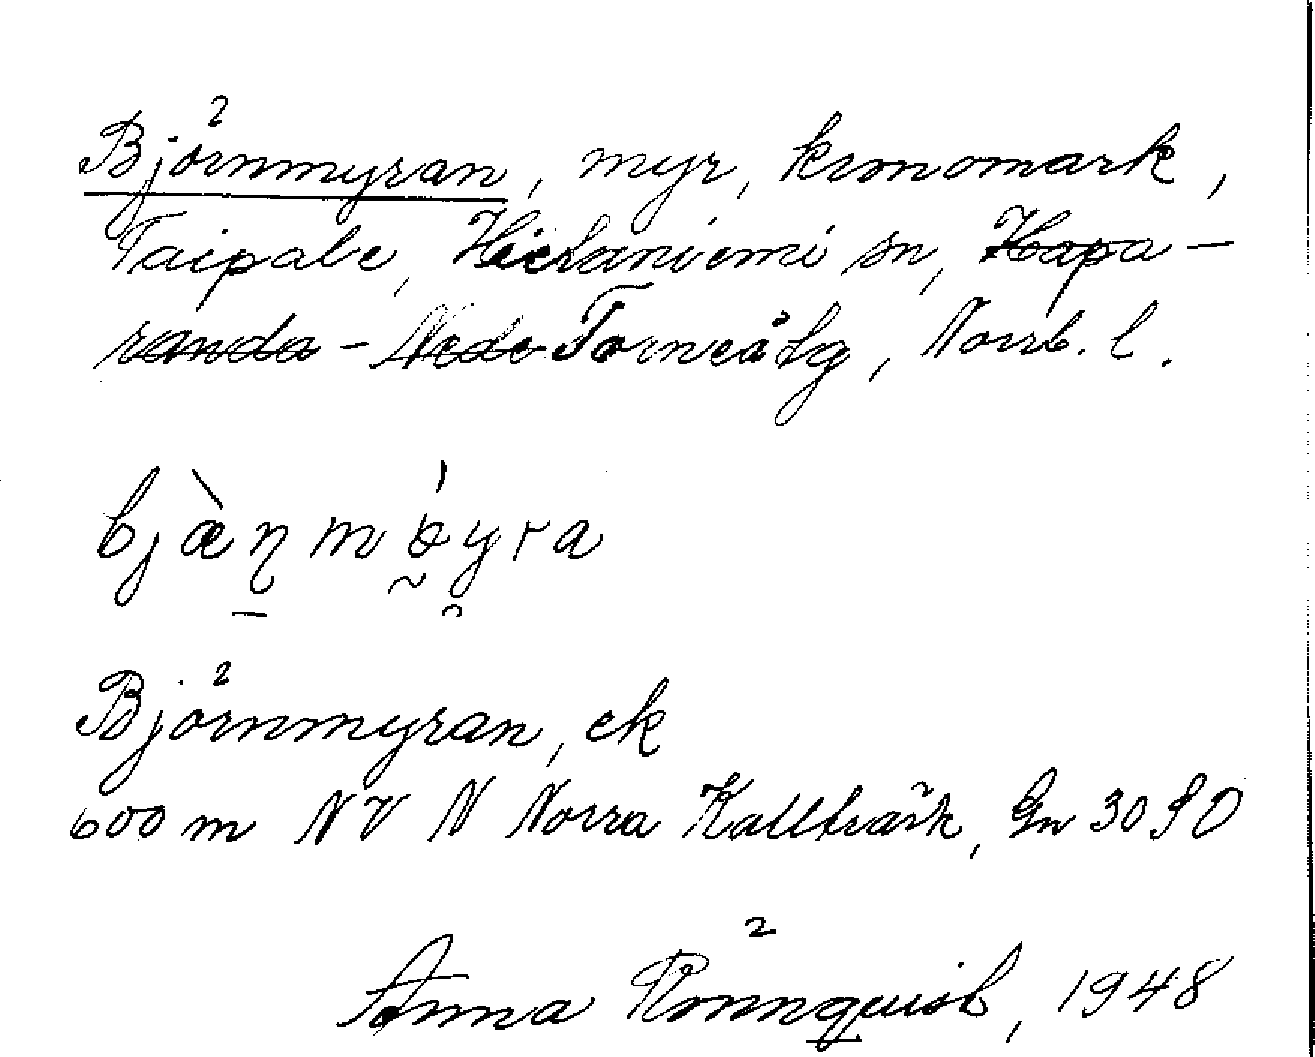 Björnmyran, myr, kronomark,
Taipale, Hietaniemi sn, Hapa-
randa - Nede Torneå tg, Norrb. l.
bjæ̀n̠mɵ́yra
Björnmyran, ek
600 m NV N Norra Kallträsk, Gn 30 SO
Anna Rönnquist, 1948